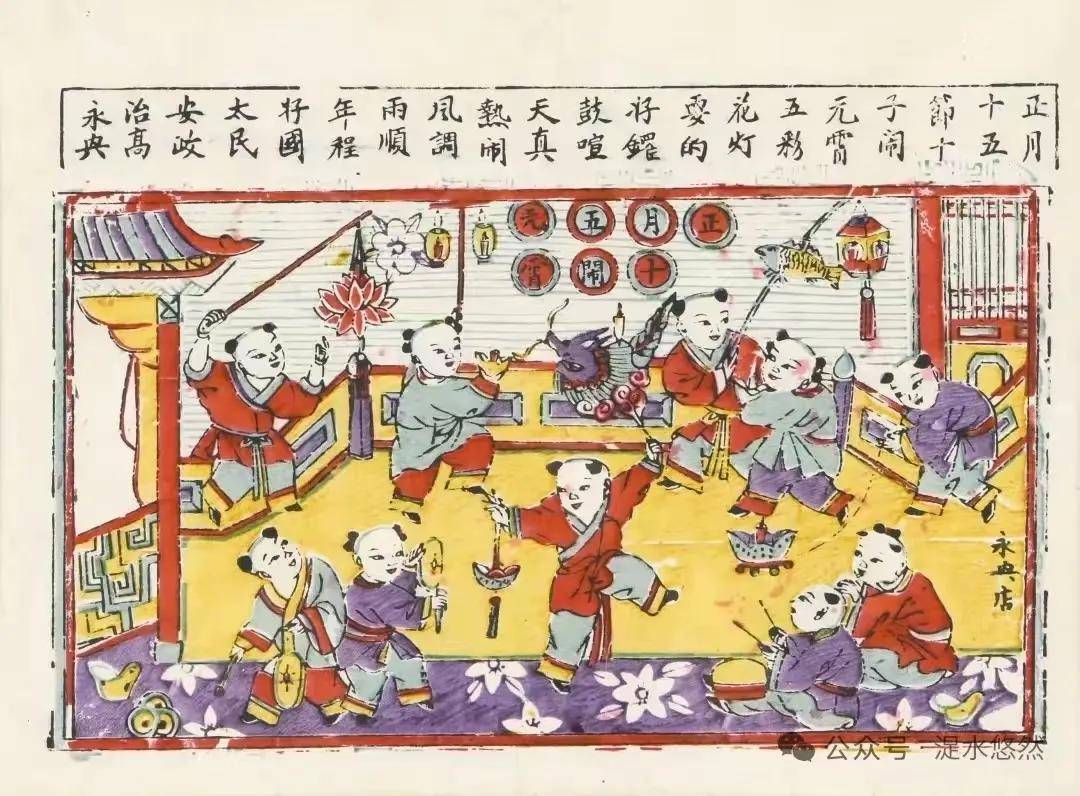 正月
十五
節十
子闹
元霄
五彩
花灯
耍的
好鑼
鼓喧
天真
熱闹
風調
雨順
年程
好國
太民
安政
治高
永典
正月十五閙元宵
永典店
公众号 · 湜水悠然